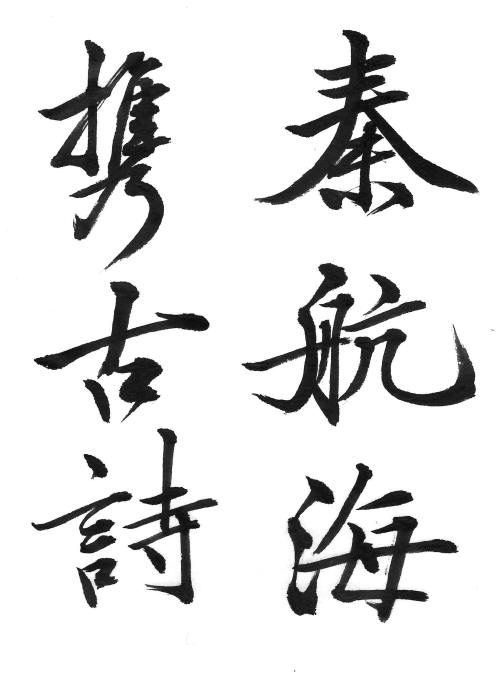 秦航海
携古詩